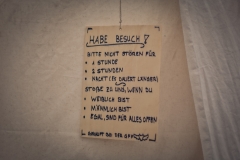 HABE BESUCH!
BITTE NICHT STÖREN FÜR
• 1 STUNDE
• 2 STUNDEN
• NACHT (ES DAUERT LÄNGER)
STOßE ZU UNS, WENN DU
• WEIBLICH BIST
• MÄNNLICH BIST
• EGAL, SIND FÜR ALLES OFFEN